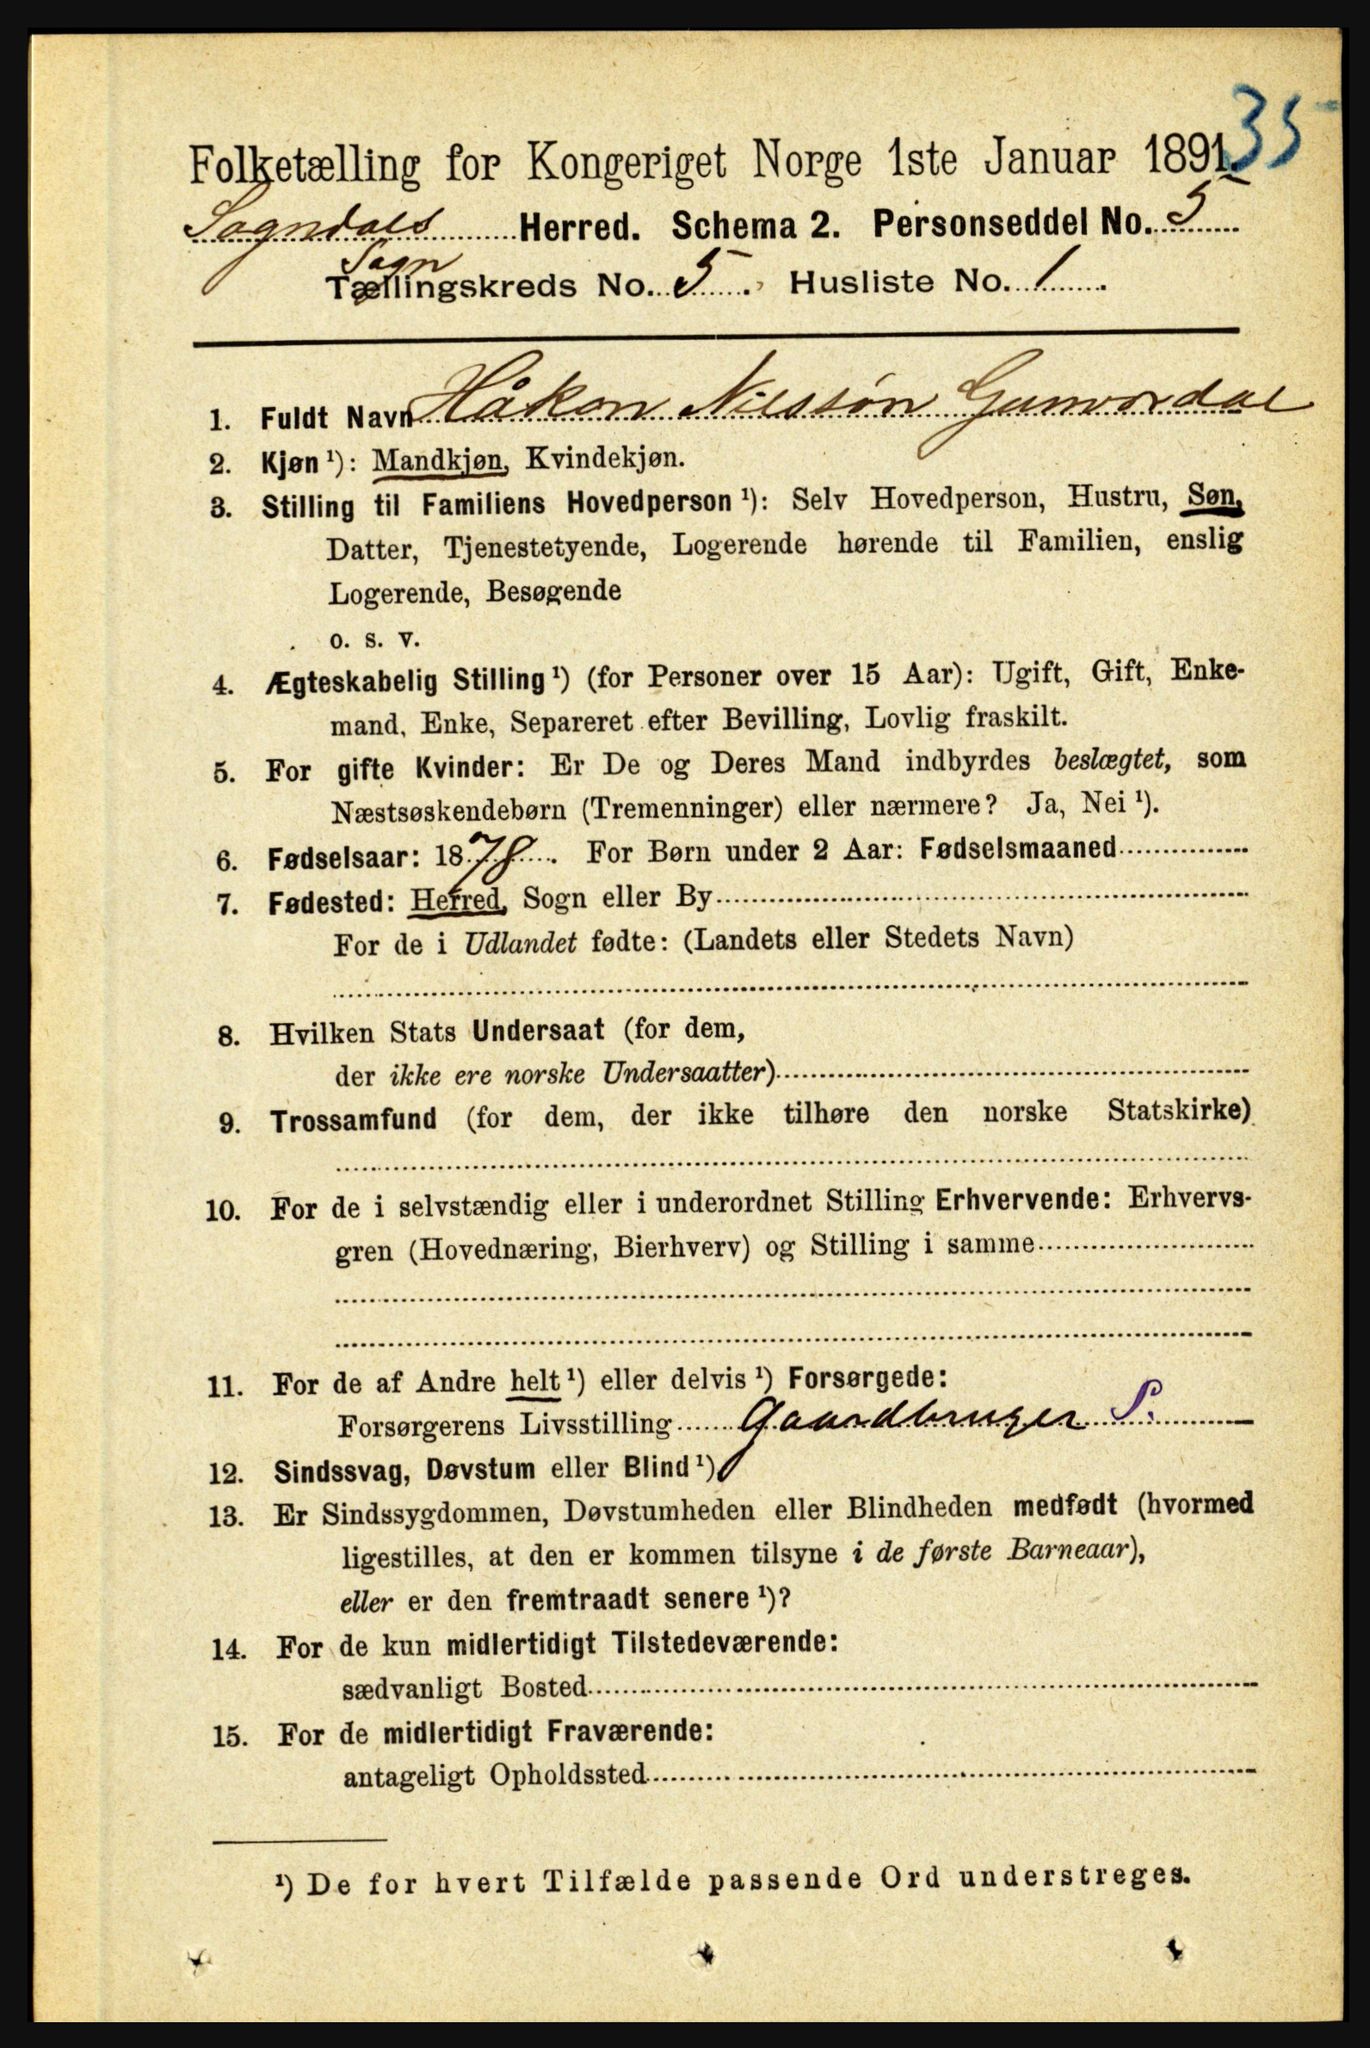 35
Folketælling for Kongeriget Norge 1ste Januar 1891.
Sogndals Herred. Schema 2. Personseddel No. 5
Sogn
Tællingskreds No. 5. Husliste No. 1.
1. Fuldt Navn Håkon Nilssøn Gunvordal
2. Kjøn¹): Mandkjøn, Kvindekjøn.
3. Stilling til Familiens Hovedperson¹): Selv Hovedperson, Hustru, Søn,
Datter, Tjenestetyende, Logerende hørende til Familien, enslig
Logerende, Besøgende
o. s. v.
4. Ægteskabelig Stilling¹) (for Personer over 15 Aar): Ugift, Gift, Enke-
mand, Enke, Separeret efter Bevilling, Lovlig fraskilt.
5. For gifte Kvinder: Er De og Deres Mand indbyrdes beslægtet, som
Næstsøskendebørn (Tremenninger) eller nærmere? Ja, Nei¹).
6. Fødselsaar: 1878. For Børn under 2 Aar: Fødselsmaaned
7. Fødested: Herred, Sogn eller By
For de i Udlandet fødte: (Landets eller Stedets Navn)
8. Hvilken Stats Undersaat (for dem,
der ikke ere norske Undersaatter)
9. Trossamfund (for dem, der ikke tilhøre den norske Statskirke)
10. For de i selvstændig eller i underordnet Stilling Erhvervende: Erhvervs-
gren (Hovednæring, Bierhverv) og Stilling i samme
11. For de af Andre helt¹) eller delvis¹) Forsørgede:
Forsørgerens Livsstilling Gaardbruger S.
12. Sindssvag, Døvstum eller Blind¹)
13. Er Sindssygdommen, Døvstumheden eller Blindheden medfødt (hvormed
ligestilles, at den er kommen tilsyne i de første Barneaar),
eller er den fremtraadt senere¹)?
14. For de kun midlertidigt Tilstedeværende:
sædvanligt Bosted
15. For de midlertidigt Fraværende:
antageligt Opholdssted
¹) De for hvert Tilfælde passende Ord understreges.